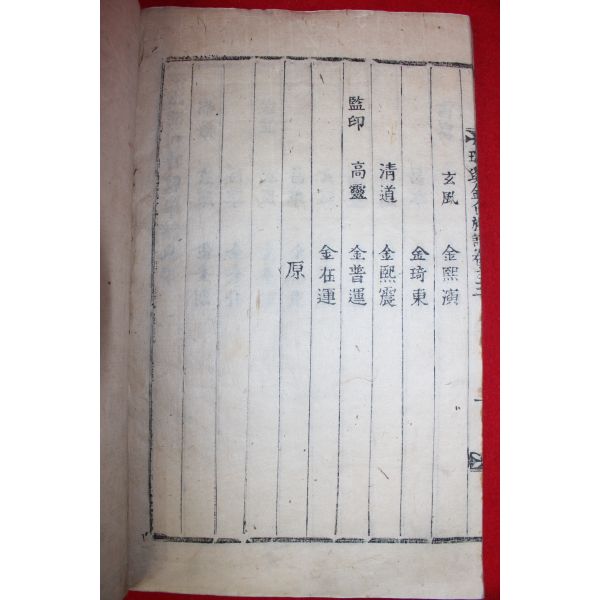 玄風 金熙演
金琦東
清道 金熙震
監印 高靈 金普運
金在運
原